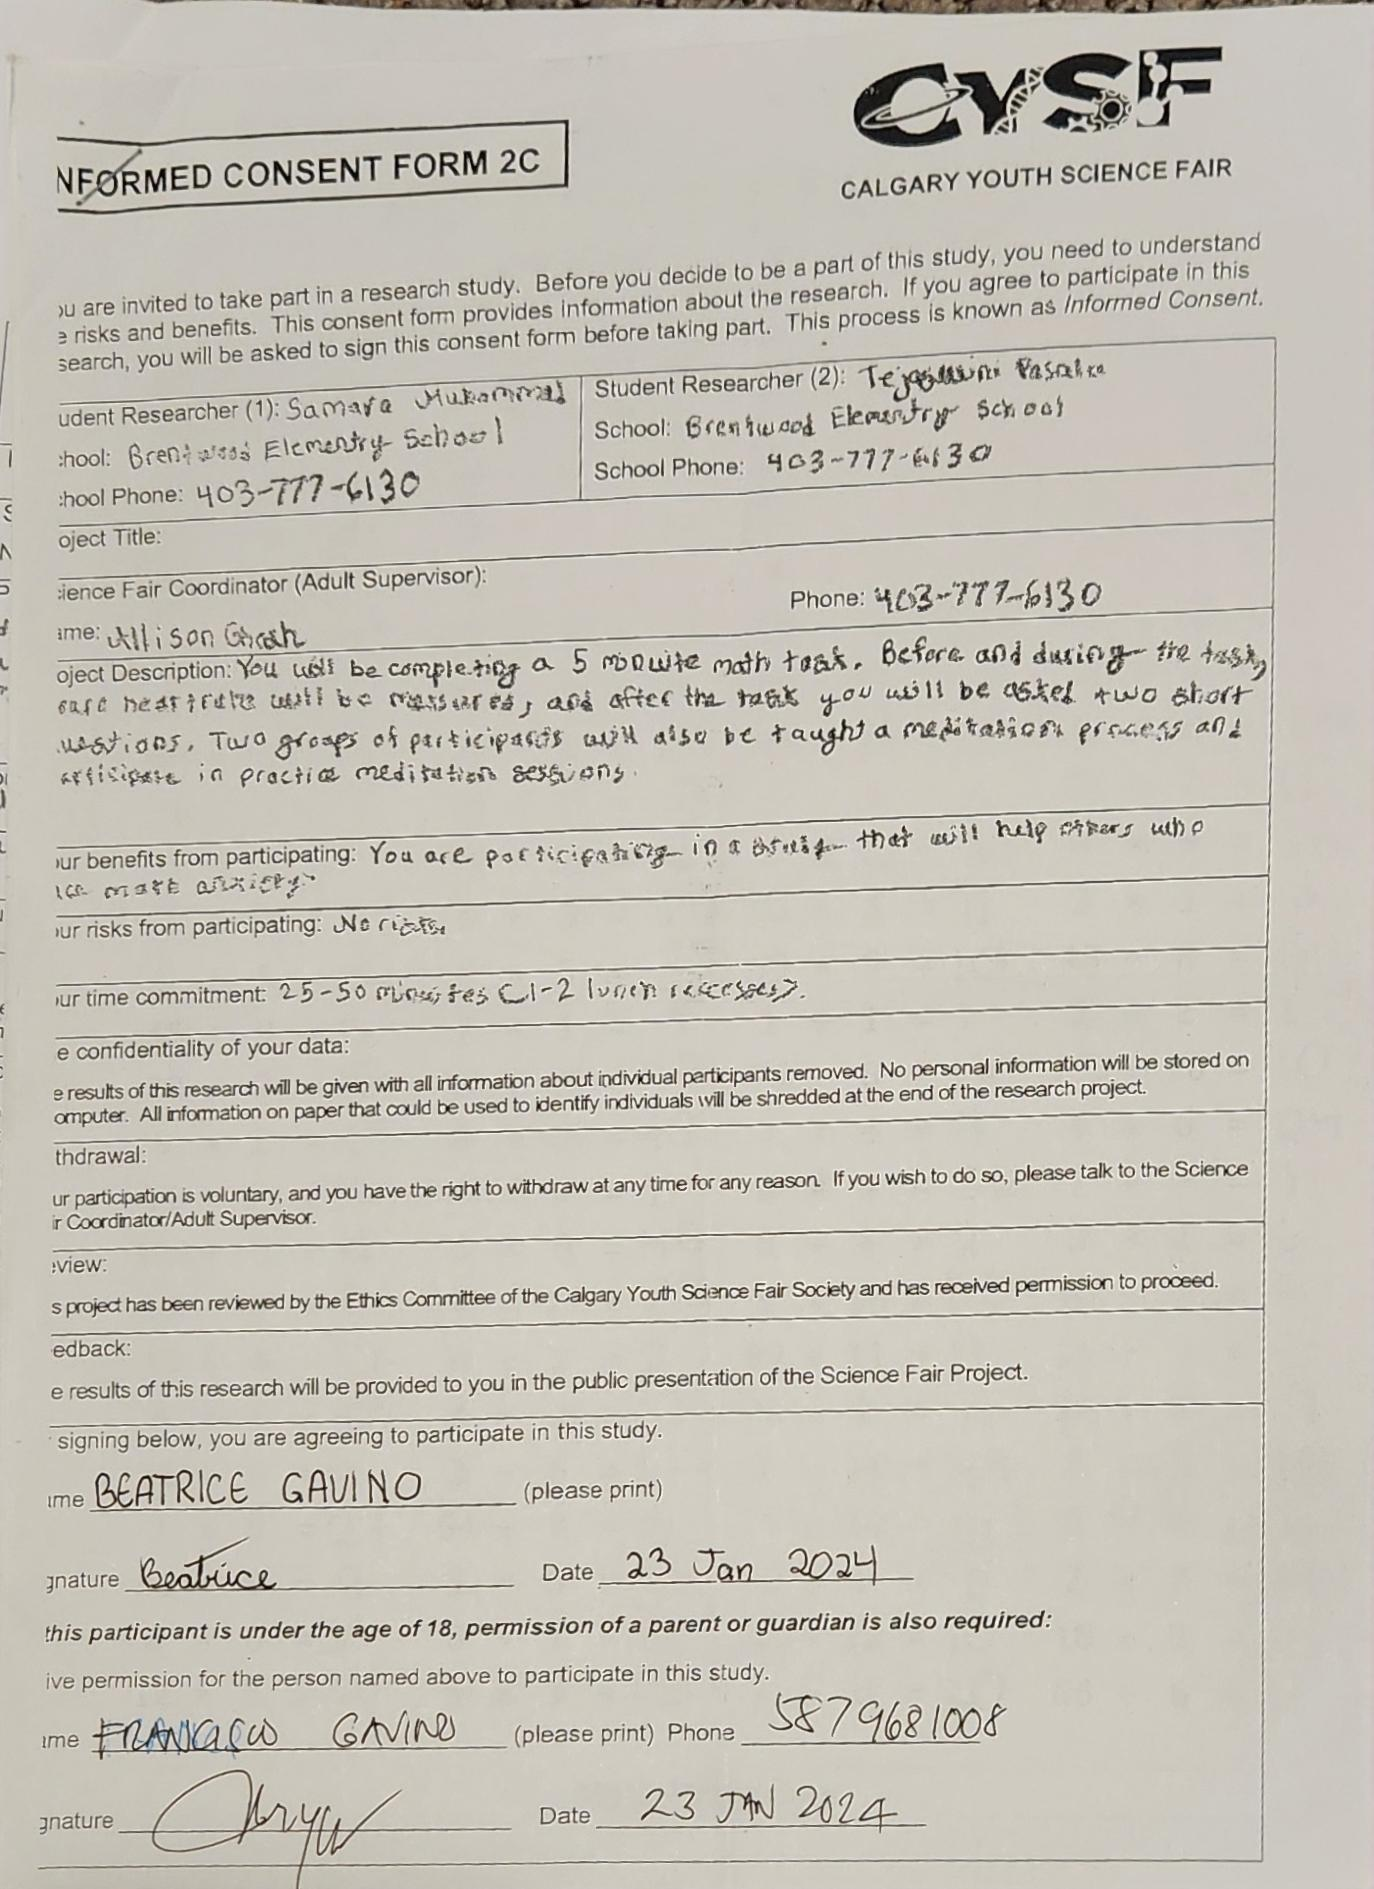 CYSF
CALGARY YOUTH SCIENCE FAIR
NFORMED CONSENT FORM 2C
ou are invited to take part in a research study. Before you decide to be a part of this study, you need to understand
e risks and benefits. This consent form provides information about the research. If you agree to participate in this
search, you will be asked to sign this consent form before taking part. This process is known as Informed Consent.
udent Researcher (1): Samara
Student Researcher (2):
chool: Brentwood Elementry School
School: Brentwood Elementry School
chool Phone: 403-777-6130
School Phone: 403-777-6130
oject Title:
cience Fair Coordinator (Adult Supervisor):
ame: Allison
Phone: 403-777-6130
oject Description: You will be completing a 5 minute math task. Before and during the task,
heart rate will be, and after the task you will be asked two short
uestions. Two groups of participants will also be taught a meditation process and
articipate in practice meditation sessions.
our benefits from participating: You are participating in a study that will help others who
math anxiety
our risks from participating: No risks
our time commitment: 25-50 minutes (1-2 lunch recesses).
e confidentiality of your data:
e results of this research will be given with all information about individual participants removed. No personal information will be stored on
omputer. All information on paper that could be used to identify individuals will be shredded at the end of the research project.
thdrawal:
ur participation is voluntary, and you have the right to withdraw at any time for any reason. If you wish to do so, please talk to the Science
ir Coordinator/Adult Supervisor.
eview:
s project has been reviewed by the Ethics Committee of the Calgary Youth Science Fair Society and has received permission to proceed.
edback:
e results of this research will be provided to you in the public presentation of the Science Fair Project.
signing below, you are agreeing to participate in this study.
ame BEATRICE GAVINO (please print)
gnature Beatrice Date 23 Jan 2024
this participant is under the age of 18, permission of a parent or guardian is also required:
ive permission for the person named above to participate in this study.
ame FRANCISCO GAVINO (please print) Phone 5879681008
gnature Date 23 JAN 2024